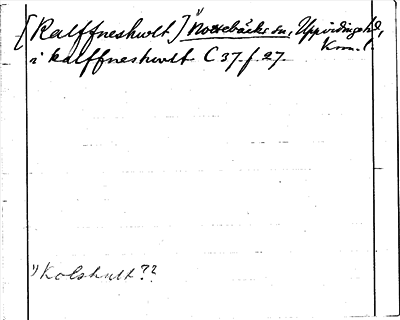 [Kalffneshwlt] 1) Norrebäcks sn, Uppvidinge hd,
Kron. l.
i kalffneshwlt C 37. f. 27.
1) Kolshult??